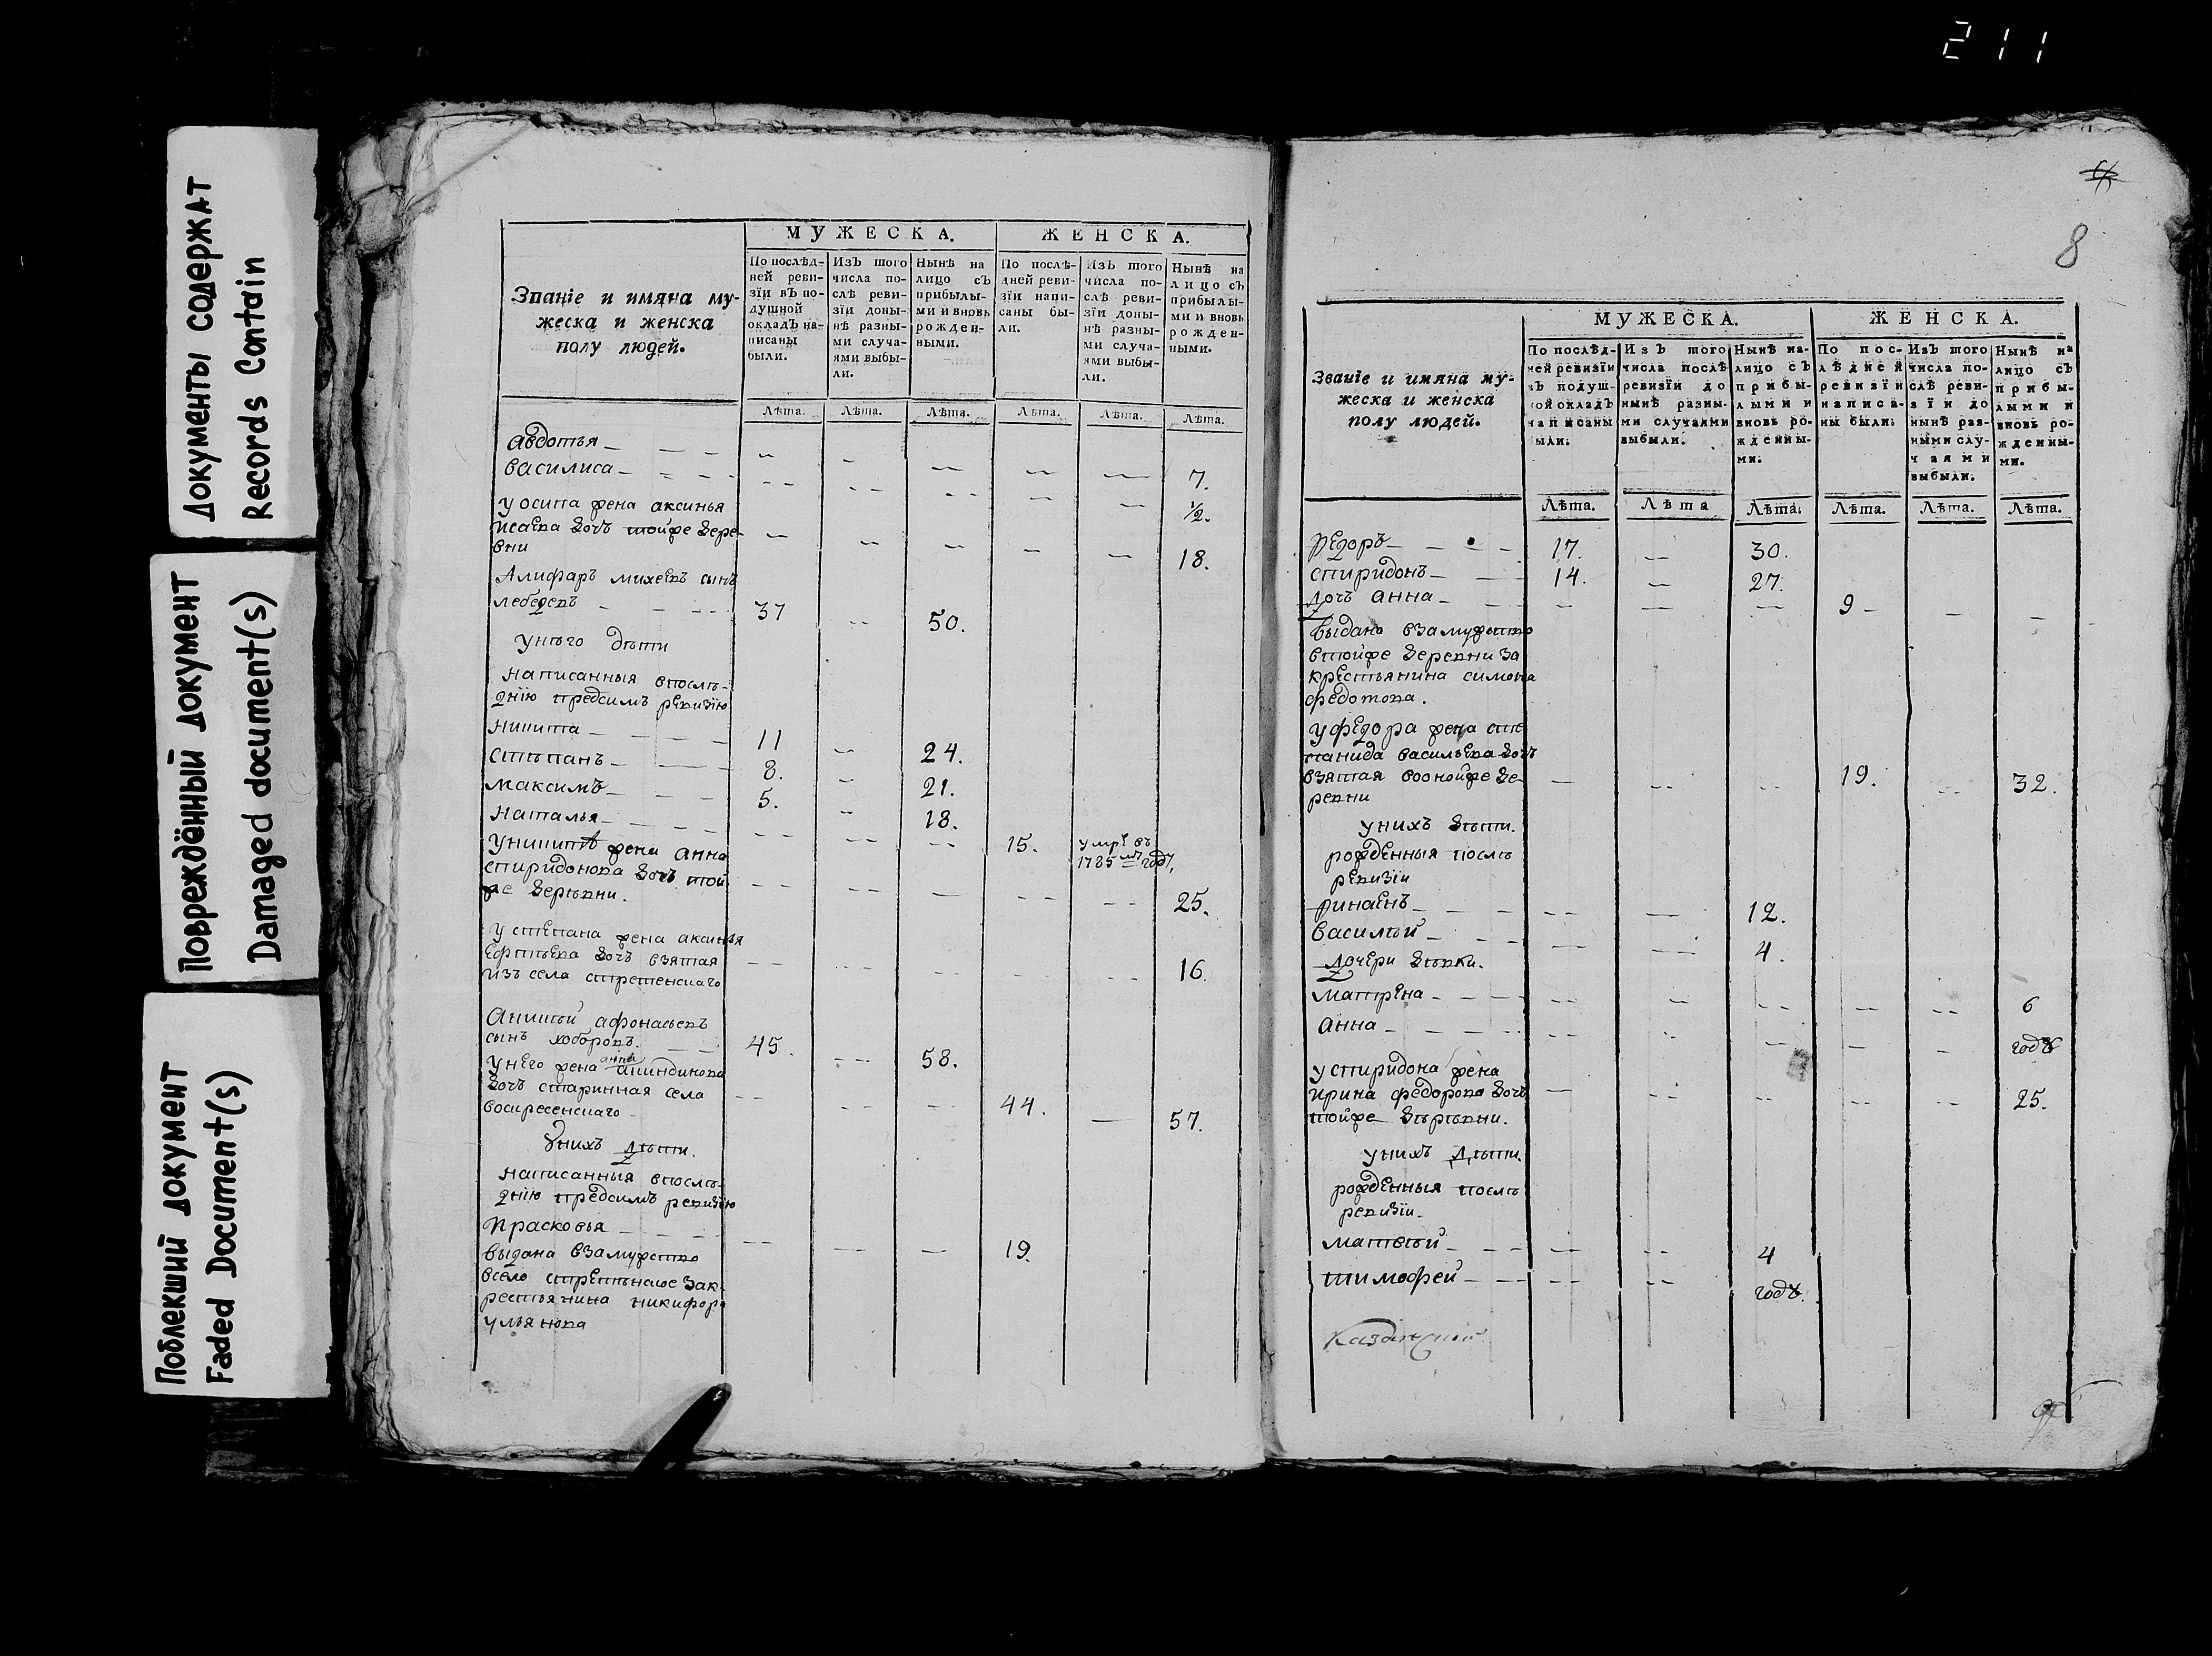 211
Документы содержат
Records Contain
Повреждённый документ
Damaged document(s)
Поблекший документ
Faded Document(s)
МУЖЕСКА.
ЖЕНСКА.
Званіе и имяна му-
жеска и женска
полу людей.
По послѣд-
ней реви-
зїи въ по-
душной
окладъ на-
писаны
были.
Изъ того
числа по-
слѣ реви-
зїи доны-
нѣ разны-
ми случа-
ями выбы-
ли.
Нынѣ на
лицо съ
прибылы-
ми и вновь
рожден-
ными.
По послѣ-
дней реви-
зїи напи-
саны бы-
ли.
Изъ того
числа по-
слѣ реви-
зїи доны-
нѣ разны-
ми случа-
ями выбы-
ли.
Нынѣ на
лицо съ
прибылы-
ми и вновь
рожден-
ными.
Лѣта. Лѣта. Лѣта. Лѣта. Лѣта. Лѣта.
авдотья 7.
василиса ½.
у осипа жена аксинья
исаева дочь тойже дере-
вни 18.
михеевъ сынъ
лебедевъ 37 50.
унѣго дѣти
написанныя впослѣ-
днію предсимъ ревизію
никита 11 24.
стѣпанъ 8. 21.
максимъ 5. 18.
наталья 15. умре въ
1785мъ году,
уникиты жена анна
спиридонова дочь той
же дерѣвни. 25.
у степана жена аксинья
дочь взятая
изъ села стретенскаго 16.
Аникѣй афонасьевъ
сынъ хоборовъ. 45. 58.
унего жена анна
дочь старинная села
воскресенскаго 44. 57.
Унихъ дѣти.
написанныя впослѣ-
днію предсимъ ревизію
Прасковья 19.
выдана взамужство
всело стретѣнское зак-
рестьянина никифора
ульянова
8
МУЖЕСКА.
ЖЕНСКА.
Званїе и имяна му-
жеска и женска
полу людей.
По послѣд-
ней ревизїи
въ подуш-
ной окладъ
написаны
были.
Изъ того
числа послѣ
ревизїи до
нынѣ разны-
ми случаями
выбыли.
Нынѣ на-
лицо съ
прибы-
лыми и
вновь ро-
жденны-
ми.
По пос-
лѣдней
ревизїи
написа-
ны были.
Изъ того
числа по-
слѣ реви-
зїи до
нынѣ раз-
ными слу-
чаями
выбыли.
Нынѣ на
лицо съ
прибы-
лыми и
вновь ро-
жденны-
ми.
Лѣта. Лѣта Лѣта. Лѣта. Лѣта. Лѣта.
федоръ 17. 30.
спиридонъ 14. 27.
дочь анна 9
выдана взамужство
втойже деревни за
крестьянина симона
федотова.
у федора жена сте-
панида васильева дочь
взятая воонойже де-
ревни 19. 32.
унихъ дѣти.
рожденныя послѣ
ревизіи
12.
василѣй 4.
дочери дѣвки.
матрена 6
анна годъ
успиридона жена
ирина федорова дочь
тойже дѣрѣвни. 25.
унихъ дѣти.
рожденныя послѣ
ревизіи.
матвѣй 4
тимофей годъ.